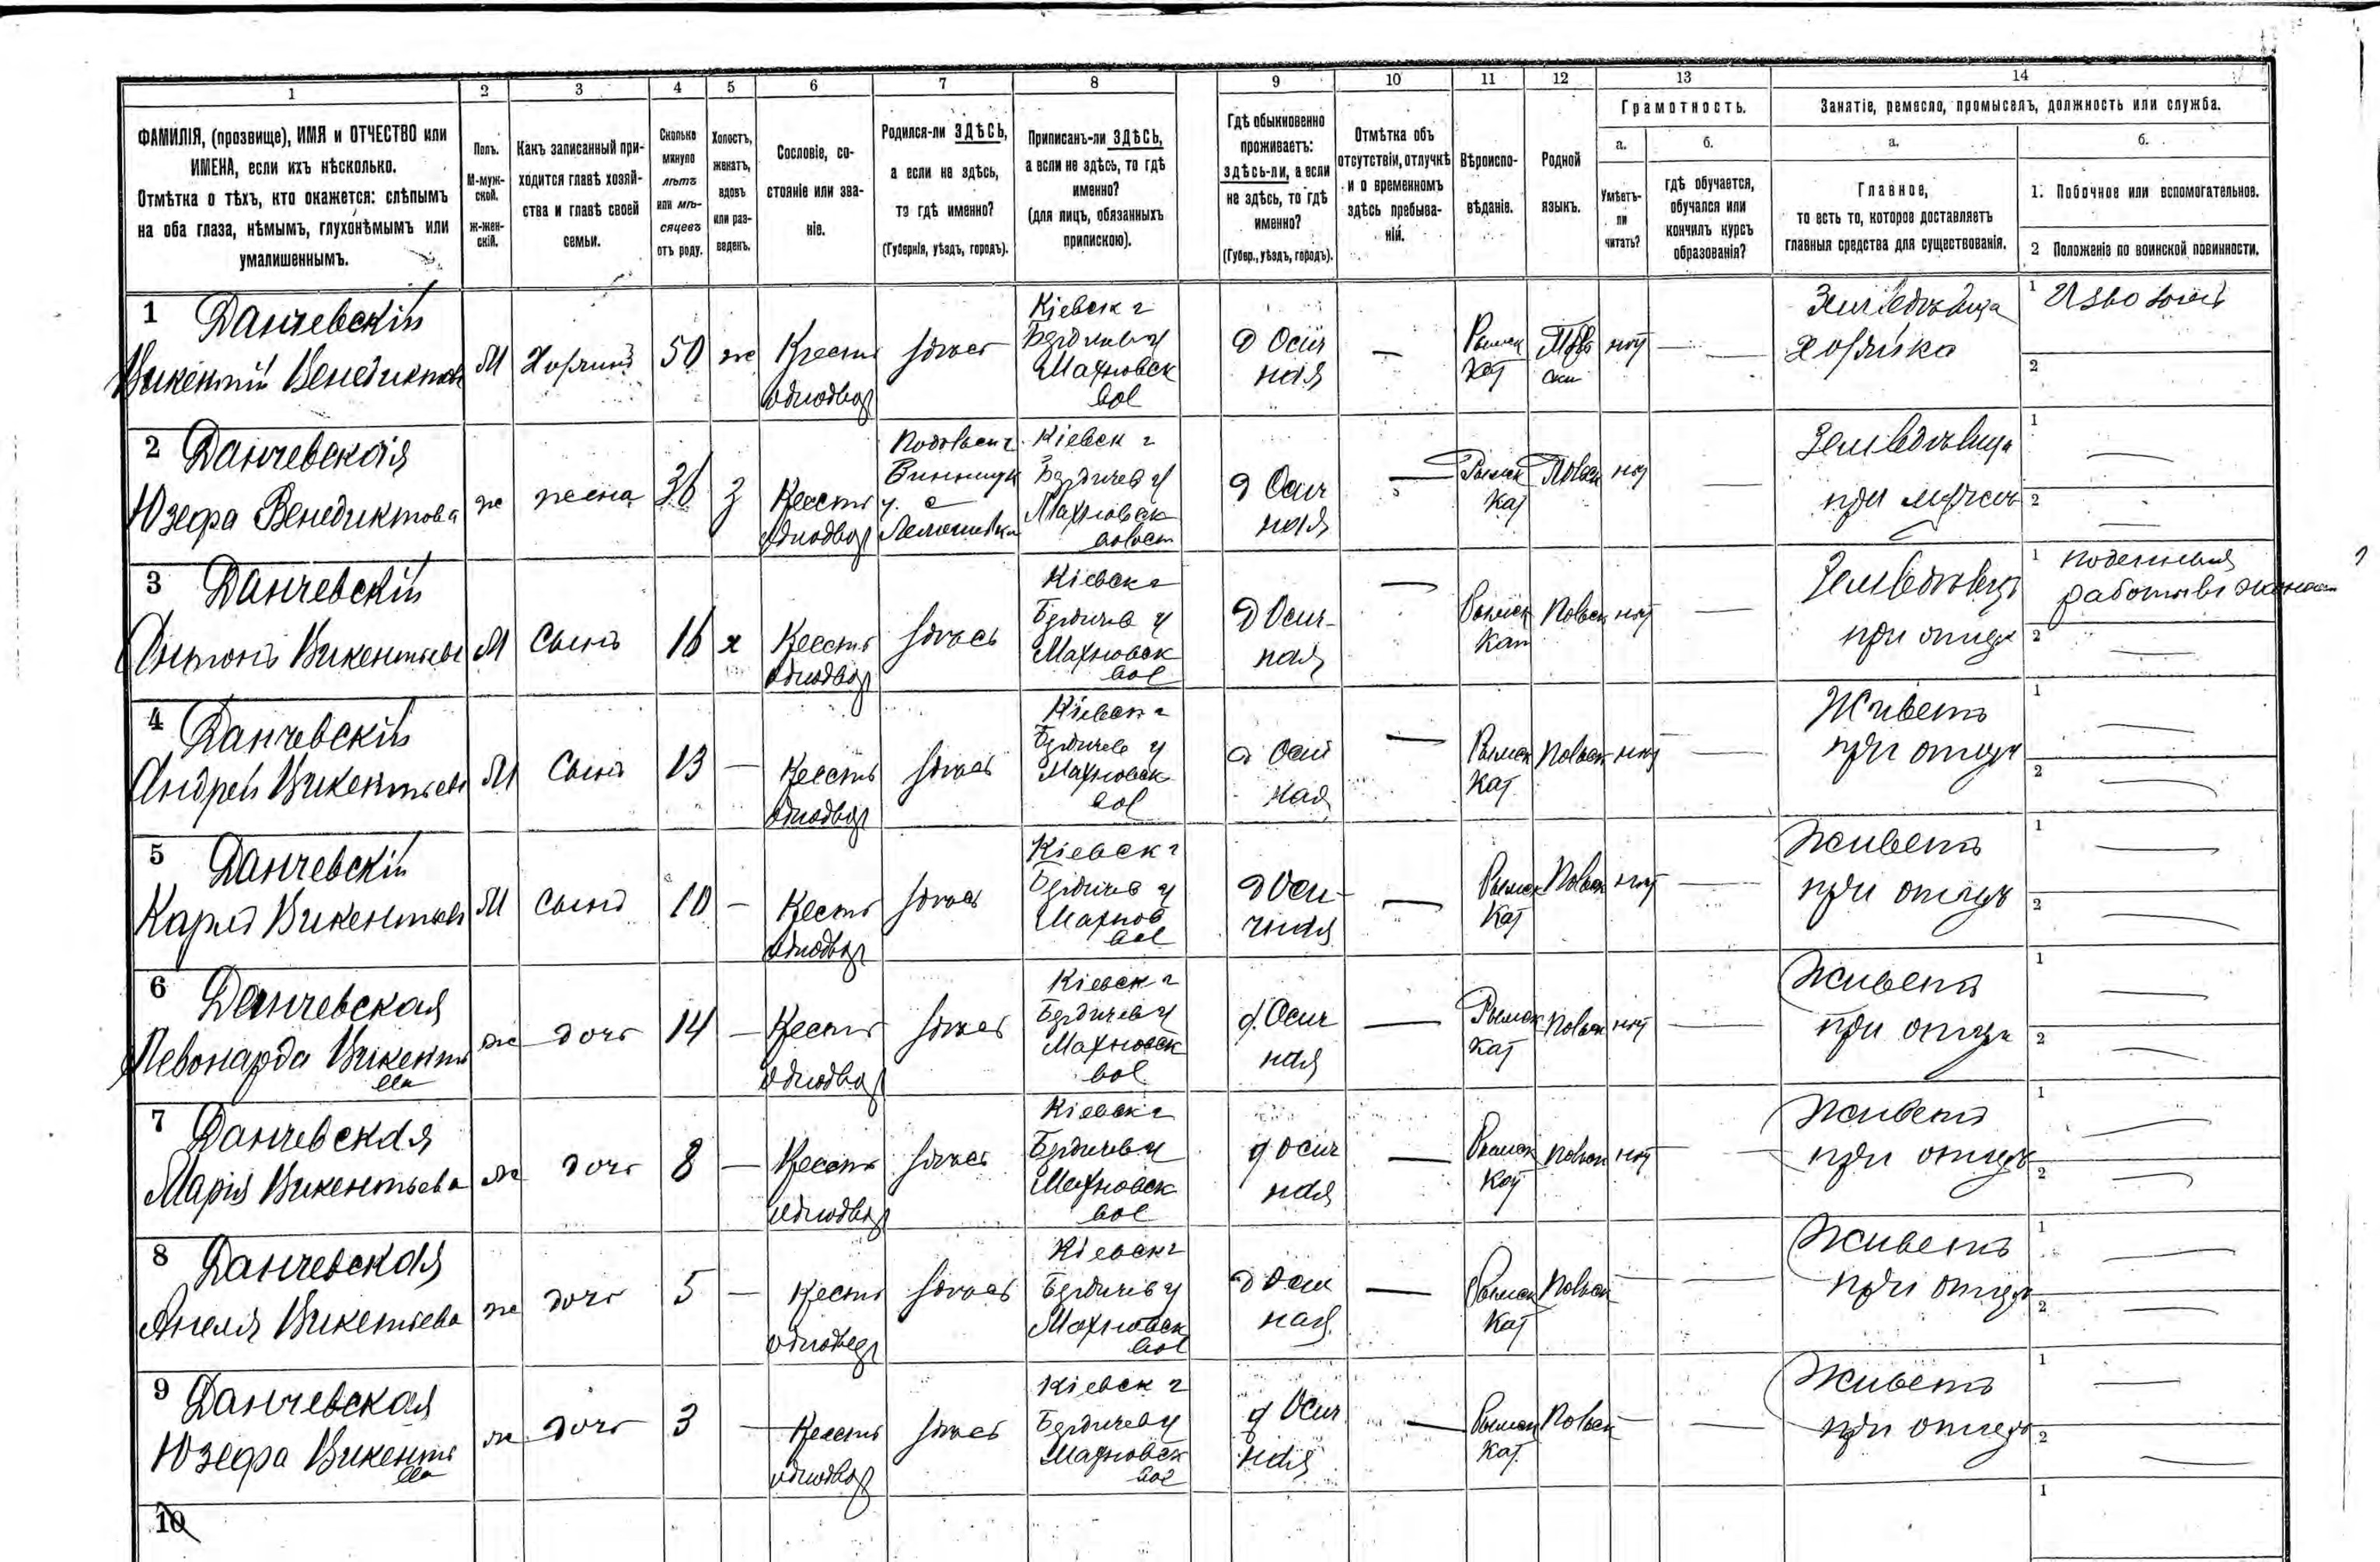 1 2 3 4 5 6 7 8 9 10 11 12 13 14
ФАМИЛІЯ, (прозвище), ИМЯ и ОТЧЕСТВО или
ИМЕНА, если ихъ нѣсколько.
Отмѣтка о тѣхъ, кто окажется: слѣпымъ
на оба глаза, нѣмымъ, глухонѣмымъ или
умалишеннымъ.
Полъ.
М-муж-
ской.
ж-жен-
скій.
Какъ записанный при-
ходится главѣ хозяй-
ства и главѣ своей
семьи.
Сколько
минуло
лѣтъ
или мѣ-
сяцевъ
отъ роду.
Холостъ,
женатъ,
вдовъ
или раз-
веденъ.
Сословіе, со-
стояніе или зва-
ніе.
Родился-ли ЗДѢСЬ,
а если не здѣсь,
то гдѣ именно?
(Губернія, уѣздъ, городъ).
Приписанъ-ли ЗДѢСЬ,
а если не здѣсь, то гдѣ
именно?
(для лицъ, обязанныхъ
припискою).
Гдѣ обыкновенно
проживаетъ:
здѣсь-ли, а если
не здѣсь, то гдѣ
именно?
(Губер., уѣздъ, городъ).
Отмѣтка объ
отсутствіи, отлучкѣ
и о временномъ
здѣсь пребыва-
ніи.
Вѣроиспо-
вѣданіе.
Родной
языкъ.
Грамотность.
а.
Умѣетъ-
ли
читать?
б.
гдѣ обучается,
обучался или
кончилъ курсъ
образованія?
Занятіе, ремесло, промыселъ, должность или служба.
а.
Главное,
то есть то, которое доставляетъ
главныя средства для существованія.
б.
1. Побочное или вспомогательное.
2 Положеніе по воинской повинности.
1 Данчевскій
Викентій Венедиктов
М
50
ж
Кресть
однодвор
здѣсь
Кіевск г
Бердичев у
Махновск
вол
д Осич
ная
Римск
Кат
нѣт
1
2
2 Данчевская
Юзефа Венедиктова
ж
жена
36
з
Кресть
однодвор
Подольск г
Винницк
у. с
Кіевск г
Бердичев у
Махновск
волост
д Осич
ная
—
Римск
Кат
Польск
нѣт
—
при мужѣ
1 —
2 —
3 Данчевскій
Антонъ Викентьев
М
Сынъ
16
х
Кресть
однодвор
здѣсь
Кіевск г
Бердичев у
Махновск
вол
д Осич-
ная
—
Римск
Кат
Польск
нѣт
—
при отцѣ
1
2 —
4 Данчевскій
Андрей Викентьев
М
Сынъ
13
—
Кресть
однодвор
здѣсь
Кіевск г
Бердичев у
Махновск
вол
д Осич
ная
—
Римск
Кат
Польск
нѣт
—
Живетъ
при отцѣ
1 —
2 —
5 Данчевскій
Карлъ Викентьев
М
Сынъ
10
—
Кресть
однодвор
здѣсь
Кіевск г
Бердичев у
Махнов
вол
д Оси-
чная
—
Римск
Кат
Польск
нѣт
—
Живетъ
при отцѣ
1 —
2 —
6 Данчевская
Левонарда Викентье
ва
ж
дочь
14
—
Крестьян
однодвор
здѣсь
Кіевск г
Бердичев у
Махновск
вол
д. Осич
ная
—
Римск
Кат
Польск
нѣт
—
Живетъ
при отцѣ
1 —
2 —
7 Данчевская
Марія Викентьева
ж
дочь
8
—
Крестьян
однодвор
здѣсь
Кіевск г
Бердичев у
Махновск
вол
д Осич
ная
—
Римск
Кат
Польск
нѣт
—
Живетъ
при отцѣ
1 —
2 —
8 Данчевская
Анеля Викентьева
ж
дочь
5
—
Крестьян
однодвор
здѣсь
Кіевск г
Бердичев у
Махновск
вол
д Осич
ная
—
Римск
Кат
Польск
—
—
Живетъ
при отцѣ
1 —
2 —
9 Данчевская
Юзефа Викентье
ва
ж
дочь
3
—
Крестьян
однодвор
здѣсь
Кіевск г
Бердичев у
Махновск
вол
д Осич
ная
—
Римск
Кат
Польск
—
—
Живетъ
при отцѣ
1 —
2 —
10
1